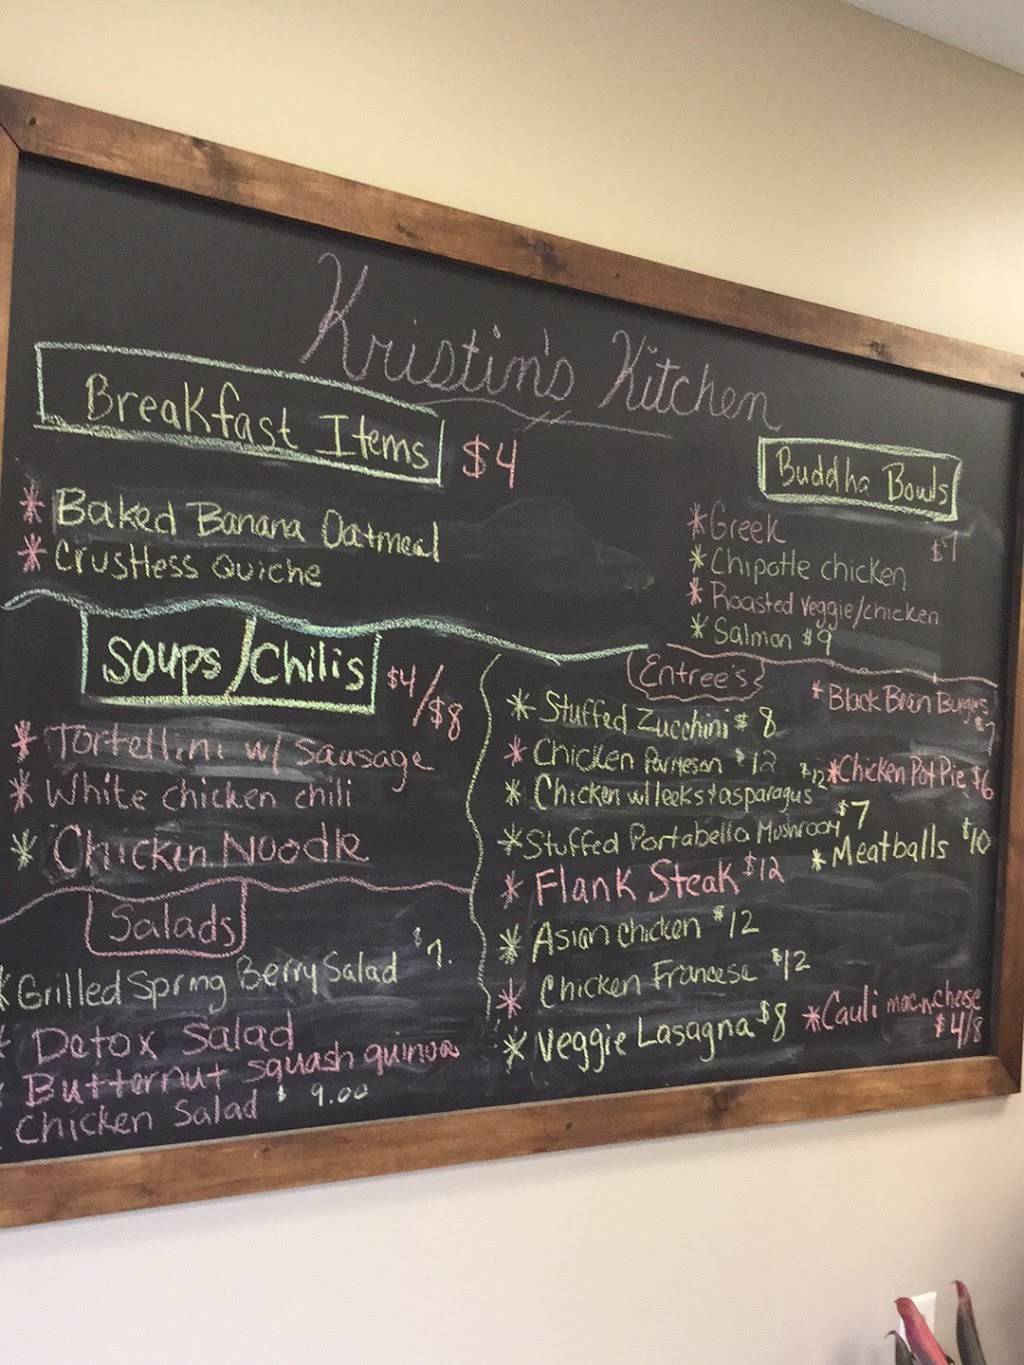 Kristin's Kitchen
Breakfast Items $4
* Baked Banana Oatmeal
* Crustless Quiche
Buddha Bowls
* Greek
$7
* Chipotle chicken
* Roasted Veggie/chicken
* Salmon $9
Soups/Chilis $4/$8
* Tortellini w/ Sausage
* White chicken chili
* Chicken Noodle
Salads
* Grilled Spring Berry Salad $7.
* Detox Salad
* Butternut squash quinoa
* Chicken Salad $9.00
Entree's
* Stuffed Zucchini $8
* Chicken Parmesan $12
* Chicken w/leeks+asparagus $12
* Stuffed Portabella Mushroom $7
* Flank Steak $12
* Asian chicken $12
* Chicken Francese $12
* Veggie Lasagna $8
* Black Bean Burgers
$7
* Chicken Pot Pie $6
* Meatballs $10
* Cauli mac-n-cheese
$4/8